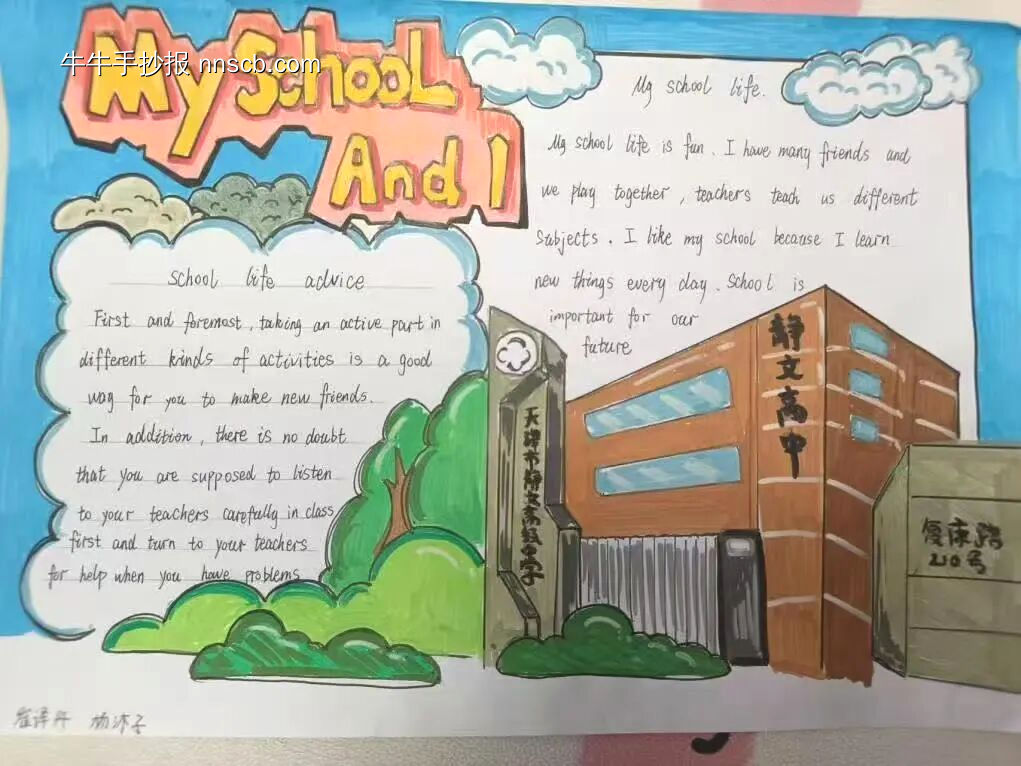 牛牛手抄报 nnscb.com
My School
And I
My school life.
My school life is fun. I have many friends and
we play together, teachers teach us different
Subjects. I like my school because I learn
new things every day. School is
important for our
future
School life advice
First and foremost, taking an active part in
different kinds of activities is a good
way for you to make new friends.
In addition, there is no doubt
that you are supposed to listen
to your teachers carefully in class
first and turn to your teachers
for help when you have problems
天津市静文高级中学
静文高中
复康路
210号
崔译丹 杨沐子